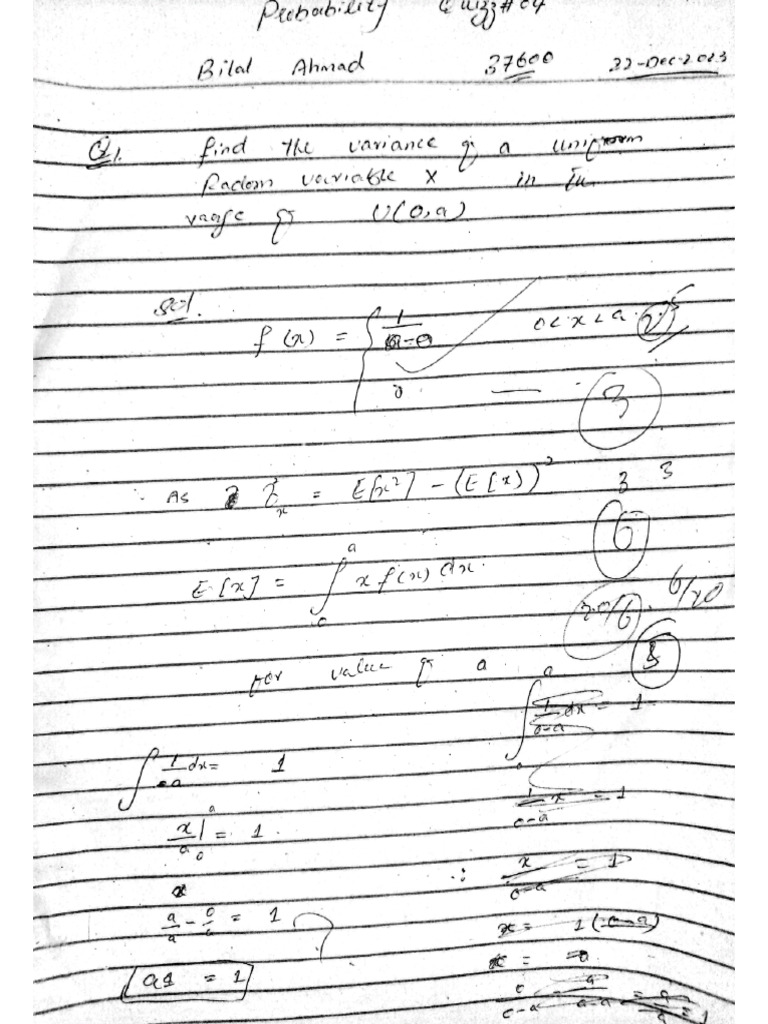 Probability Quizz#04
Bilal Ahmad 37600 22-Dec-2023
Q1. find the variance of a uniform
Radom variable X in the
range of U(0,a)
Sol.
f(x) = { 1/(a-0) 0<x<a
0 —
3
As σ²x = E[x²] - (E[x])² 3 3
6
E[x] = ∫₀ᵃ x f(x) dx.
6/20
20/6
for value of a
∫ 1/a dx = 1
x/a |₀ᵃ = 1
a/a - 0/a = 1
a1 = 1
∫₀ᵃ 1/(0-a) dx = 1
1/(0-a) x = 1
∴ x/(0-a) = 1
x = 1(0-a)